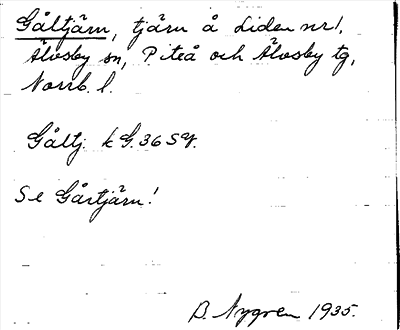 Gåltjärn, tjärn å Liden nr 1,
Älvsby sn, Piteå och Älvsby tg,
Norrb. l.
Gåltj. k G. 36 SV.
Se Gårtjärn!
B. Nygren 1935.